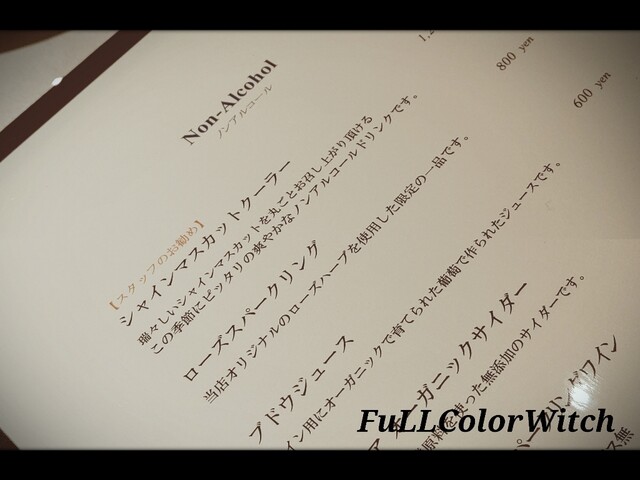 Non-Alcohol
ノンアルコール
【スタッフのお勧め】
シャインマスカットクーラー
瑞々しいシャインマスカットを丸ごとお召し上がり頂ける
この季節にピッタリの爽やかなノンアルコールドリンクです。
800 yen
ローズスパークリング
当店オリジナルのローズハーブを使用した限定の一品です。
600 yen
ブドウジュース
イン用にオーガニックで育てられた葡萄で作られたジュースです。
ガニックサイダー
原料を使った無添加のサイダーです。
グワイン
FuLLColorWitch